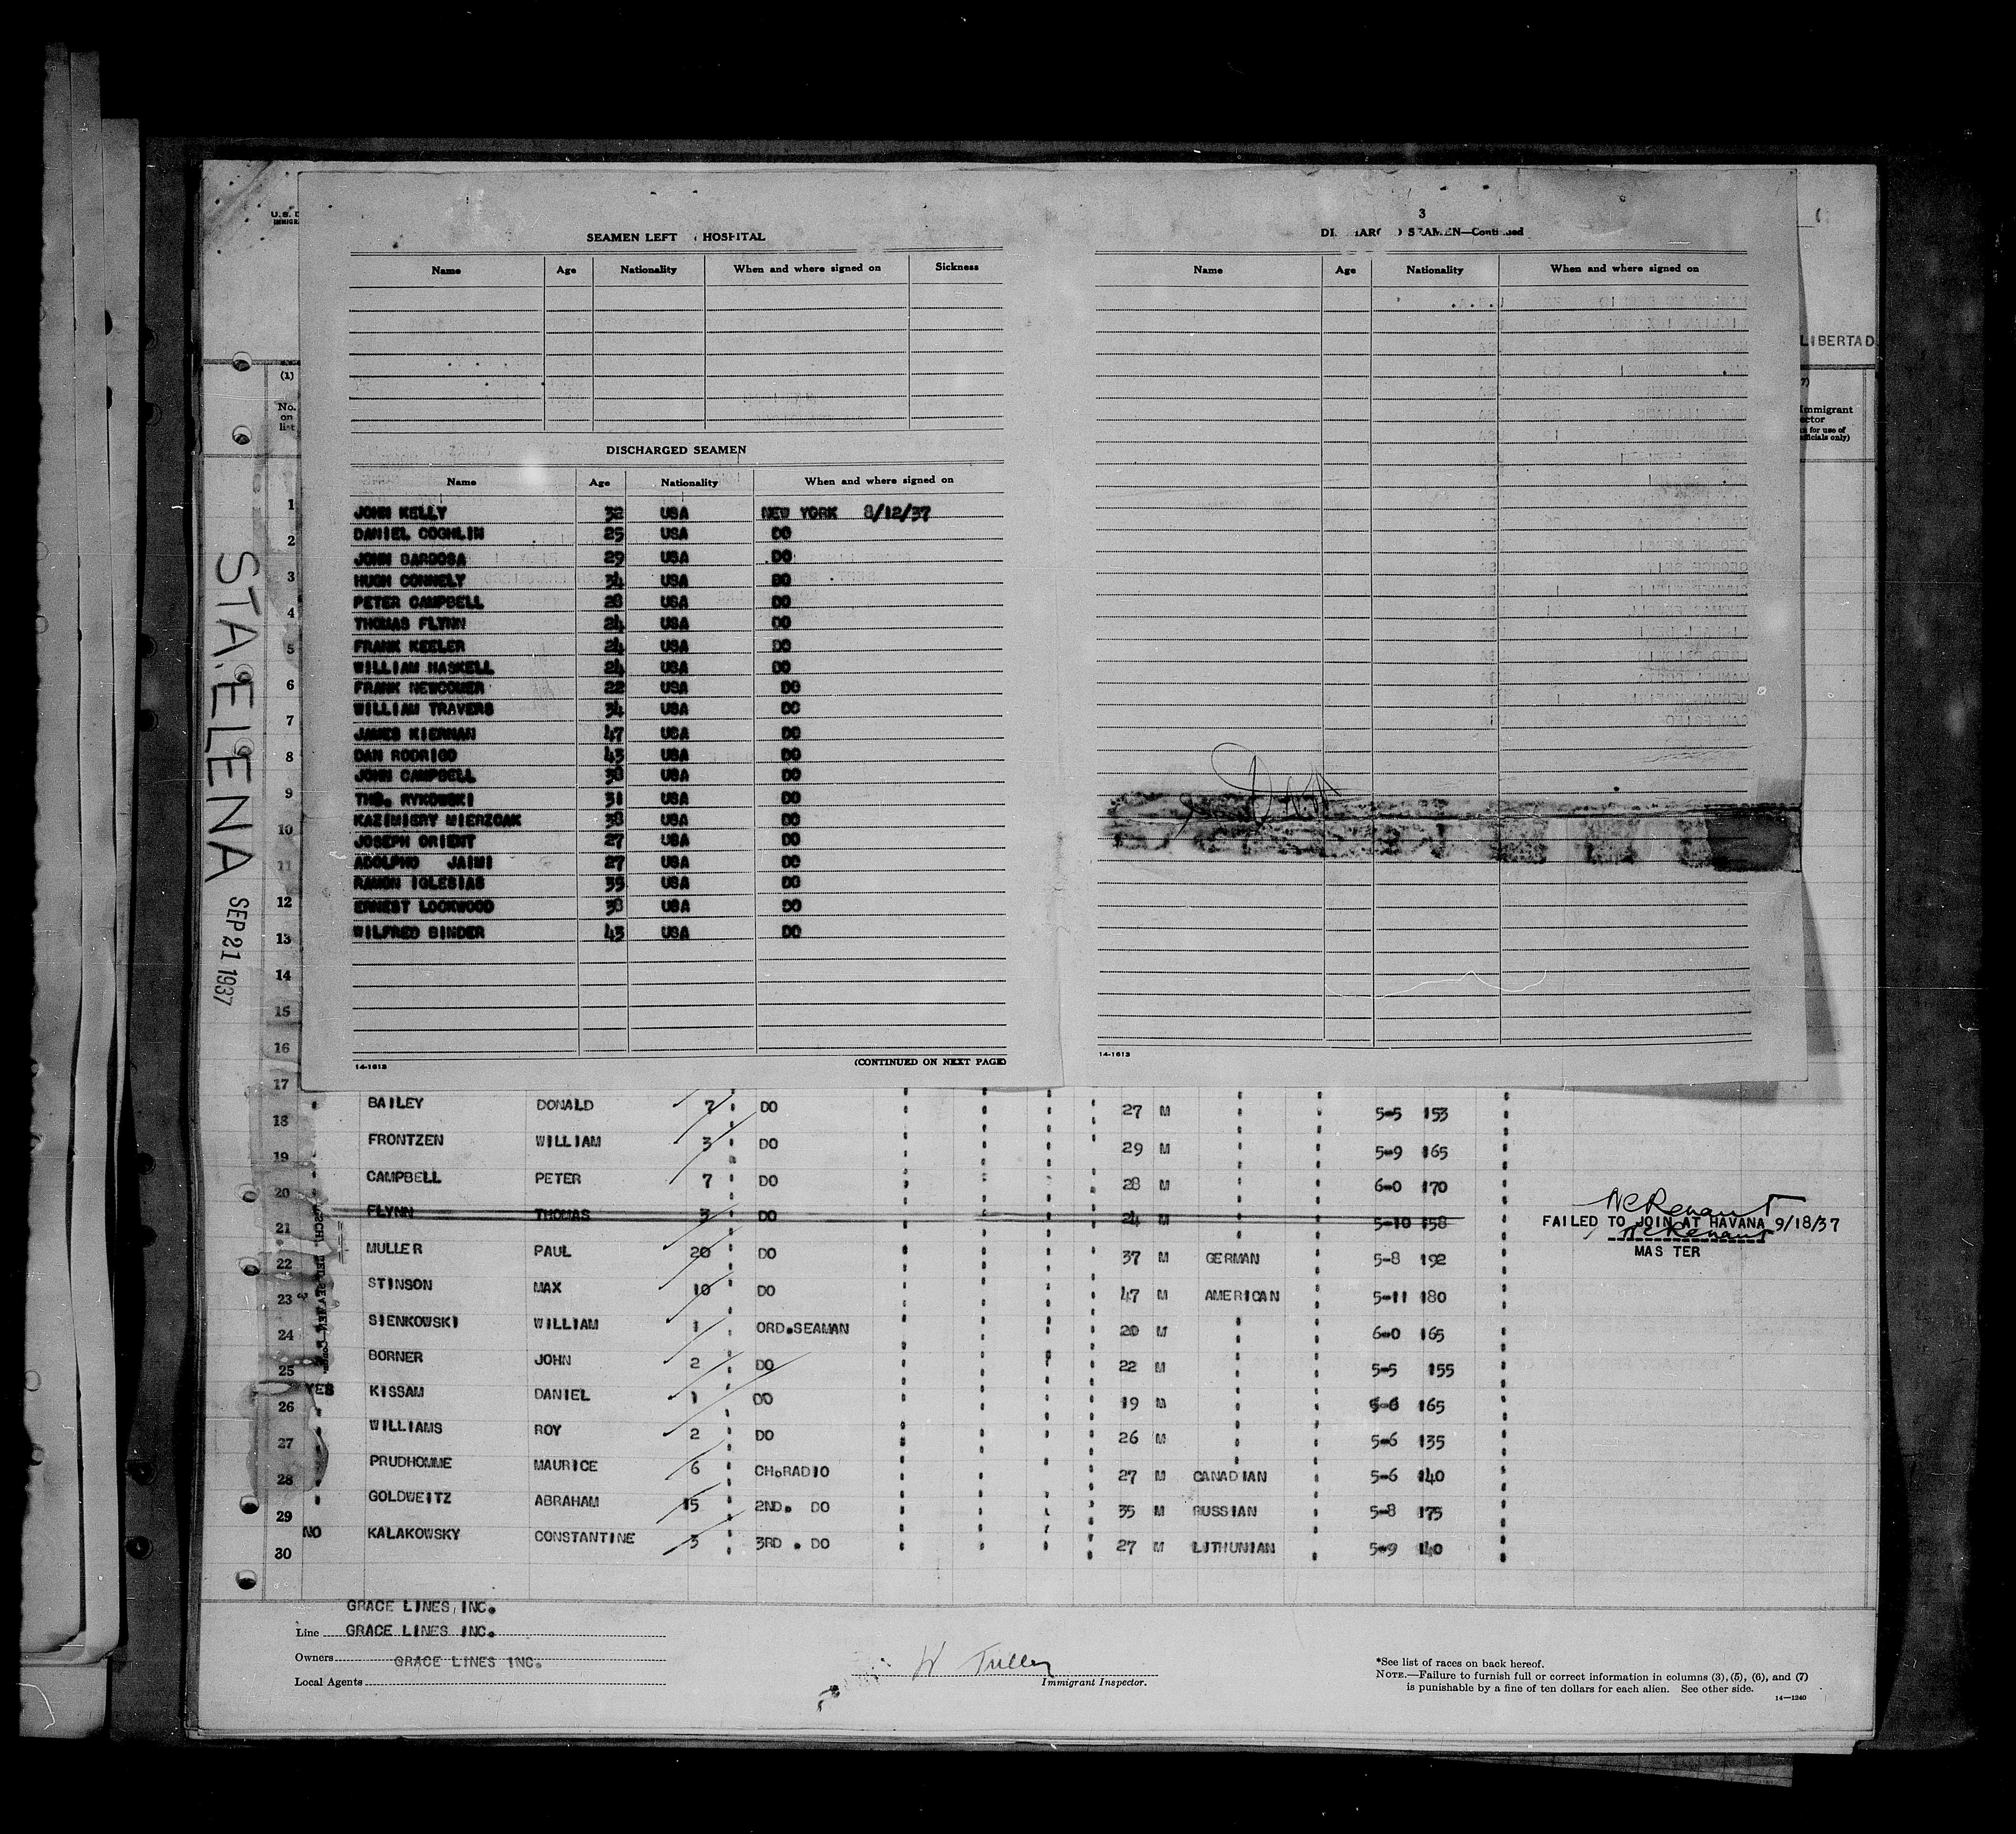 STA. ELENA SEP 21 1937
U.S. D
IMMIGR
SEAMEN LEFT HOSPITAL
Name Age Nationality When and where signed on Sickness
DISCHARGED SEAMEN
Name Age Nationality When and where signed on
JOHN KELLY 32 USA NEW YORK 8/12/37
DANIEL COGHLIN 25 USA DO
JOHN BARBOSA 29 USA DO
HUGH CONNELY 34 USA DO
PETER CAMPBELL 28 USA DO
THOMAS FLYNN 24 USA DO
FRANK KEELER 24 USA DO
WILLIAM HASKELL 24 USA DO
FRANK NEWCOMER 22 USA DO
WILLIAM TRAVERS 34 USA DO
JAMES KIERNAN 47 USA DO
DAN RODRIGO 43 USA DO
JOHN CAMPBELL 38 USA DO
THO. RYKOWSKI 31 USA DO
KAZIMIERY MIERZOAK 38 USA DO
JOSEPH ORIENT 27 USA DO
ADOLPHO JAIMI 27 USA DO
RAMON IGLESIAS 39 USA DO
ERNEST LOCKWOOD 38 USA DO
WILFRED BINDER 43 USA DO
14-1613 (CONTINUED ON NEXT PAGE)
3
SEAMEN—Continued
Name Age Nationality When and where signed on
14-1613
LIBERTAD
(1)
No.
on
list
7)
Immigrant
ector
for use of
officials only)
1
2
3
4
5
6
7
8
9
10
11
12
13
14
15
16
17
BAILEY DONALD 7 DO 27 M 5-5 153
18
FRONTZEN WILLIAM 3 DO 29 M 5-9 165
19
CAMPBELL PETER 7 DO 28 M 6-0 170
20
FLYNN THOMAS 3 DO 24 M 5-10 158 FAILED TO JOIN AT HAVANA 9/18/37
21
MASTER
MULLER PAUL 20 DO 37 M GERMAN 5-8 192
22
STINSON MAX 10 DO 47 M AMERICAN 5-11 180
23
SIENKOWSKI WILLIAM 1 ORD.SEAMAN 20 M 6-0 165
24
BORNER JOHN 2 DO 22 M 5-5 155
25
YES KISSAM DANIEL 1 DO 19 M 5-6 165
26
WILLIAMS ROY 2 DO 26 M 5-6 135
27
PRUDHOMME MAURICE 6 CH.RADIO 27 M CANADIAN 5-6 140
28
GOLDWEITZ ABRAHAM 15 2ND. DO 35 M RUSSIAN 5-8 175
29
NO KALAKOWSKY CONSTANTINE 3 3RD . DO 27 M LITHUNIAN 5-9 140
30
GRACE LINES, INC.
Line GRACE LINES INC.
Owners GRACE LINES INC.
Local Agents
Immigrant Inspector.
*See list of races on back hereof.
NOTE.—Failure to furnish full or correct information in columns (3), (5), (6), and (7)
is punishable by a fine of ten dollars for each alien. See other side.
14—1240